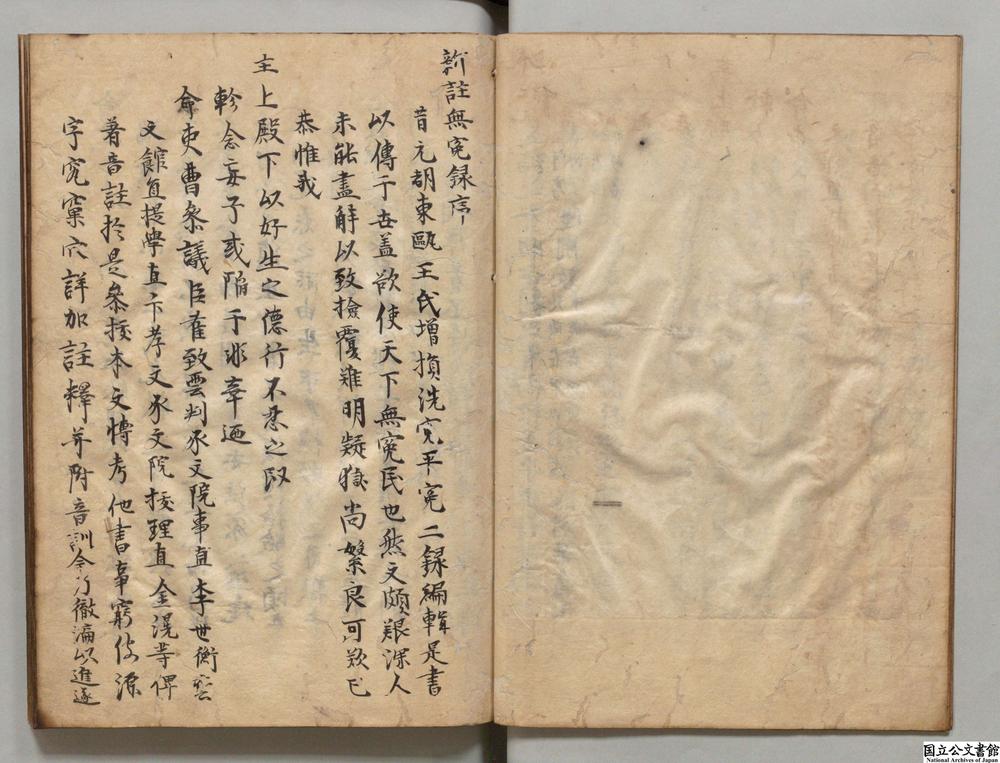 新註無冤録序
昔元胡東甌王氏增損洗冤平冤二録編輯是書
以傳于世蓋欲使天下無冤民也然文頗艱深人
未能盡解以致檢覆難明疑獄尚繁良可歎已
恭惟我
主上殿下以好生之德行不忍之政
軫念無辜或陷于非辜迺
命吏曹參議臣崔致雲判承文院事直李世衡藝
文館直提學直卞孝文承文院校理直金滉等俾
著音註於是參校本文博考他書事窮依源
字究窠穴詳加註釋并附音訓令方徹瀹以進遂
国立公文書館
National Archives of Japan